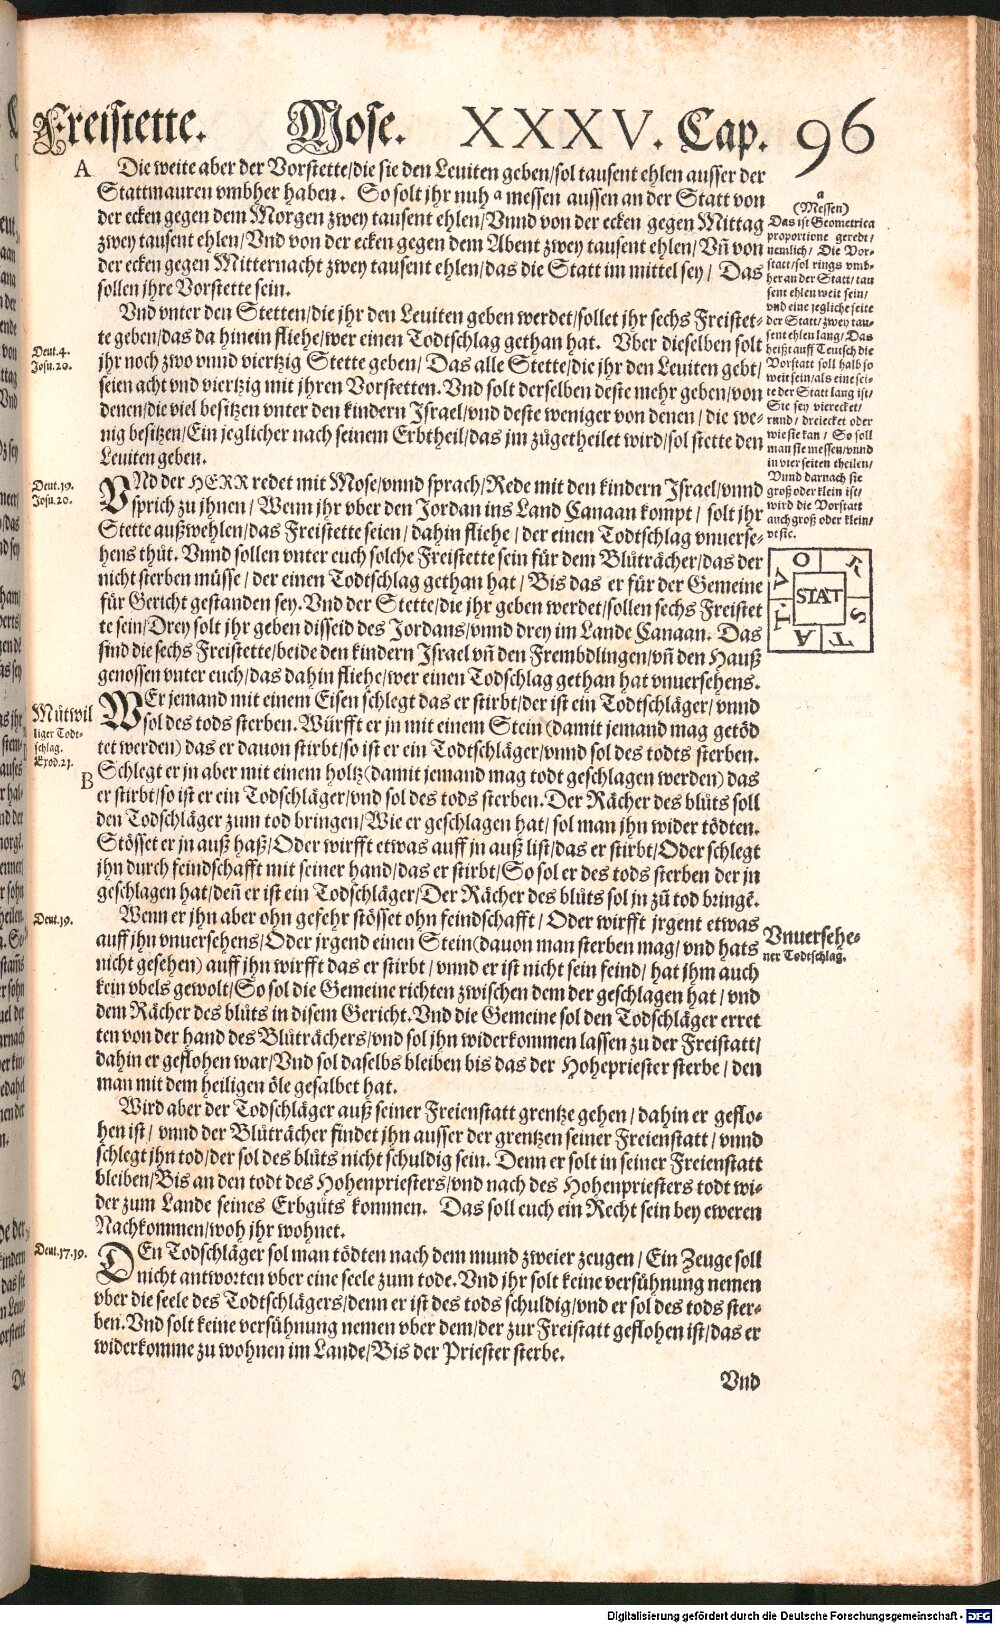 Freistette. Mose. XXXV. Cap. 96
A Die weite aber der Vorstette/die sie den Leuiten geben/sol tausent ehlen ausser der
Stattmauren vmbher haben. So solt jhr nuh a messen aussen an der Statt von
der ecken gegen dem Morgen zwey tausent ehlen/Vnnd von der ecken gegen Mittag
zwey tausent ehlen/Vnd von der ecken gegen dem Abent zwey tausent ehlen/Vn̄ von
der ecken gegen Mitternacht zwey tausent ehlen/das die Statt im mittel sey/ Das
sollen jhre Vorstette sein.
Vnd vnter den Stetten/die jhr den Leuiten geben werdet/sollet jhr sechs Freistet-
te geben/das da hinein fliehe/wer einen Todtschlag gethan hat. Vber dieselben solt
jhr noch zwo vnnd viertzig Stette geben/ Das alle Stette/die jhr den Leuiten gebt/
seien acht vnd viertzig mit jhren Vorstetten. Vnd solt derselben deste mehr geben/von
denen/die viel besitzen vnter den kindern Israel/vnd deste weniger von denen/ die we-
nig besitzen/Ein jeglicher nach seinem Erbtheil/das jm zůgetheilet wird/sol stette den
Leuiten geben.
VNd der HERR redet mit Mose/vnnd sprach/Rede mit den kindern Israel/vnnd
sprich zu jhnen/ Wenn jhr vber den Jordan ins Land Canaan kompt/ solt jhr
Stette außwehlen/das Freistette seien/ dahin fliehe/der einen Todtschlag vnuerse-
hens thůt. Vnnd sollen vnter euch solche Freistette sein für dem Blůträcher/das der
nicht sterben müsse/ der einen Todtschlag gethan hat/ Bis das er für der Gemeine
für Gericht gestanden sey. Vnd der Stette/die jhr geben werdet/sollen sechs Freistet
te sein/Drey solt jhr geben disseid des Jordans/vnnd drey im Lande Canaan. Das
sind die sechs Freistette/beide den kindern Israel vn̄ den Frembdlingen/vn̄ den Hauß
genossen vnter euch/das dahin fliehe/wer einen Todschlag gethan hat vnuersehens.
WEr jemand mit einem Eisen schlegt das er stirbt/der ist ein Todtschläger/vnnd
sol des tods sterben. Würfft er jn mit einem Stein (damit jemand mag getöd
tet werden) das er dauon stirbt/so ist er ein Todtschläger/vnnd sol des todts sterben.
Schlegt er jn aber mit einem holtz (damit jemand mag todt geschlagen werden) das
er stirbt/so ist er ein Todschläger/vnd sol des tods sterben. Der Rächer des blůts soll
den Todschläger zum tod bringen/Wie er geschlagen hat/ sol man jhn wider tödten.
Stösset er jn auß haß/Oder wirfft etwas auff jn auß list/das er stirbt/Oder schlegt
jhn durch feindschafft mit seiner hand/das er stirbt/So sol er des tods sterben der jn
geschlagen hat/den̄ er ist ein Todtschläger/Der Rächer des blůts sol jn zů tod bringē.
Wenn er jhn aber ohn gefehr stösset ohn feindschafft/ Oder wirfft jrgent etwas
auff jhn vnuersehens/Oder jrgend einen Stein (dauon man sterben mag/ vnd hats
nicht gesehen) auff jhn wirfft das er stirbt/ vnnd er ist nicht sein feind/ hat jhm auch
kein vbels gewolt/So sol die Gemeine richten zwischen dem der geschlagen hat/ vnd
dem Rächer des blůts in disem Gericht. Vnd die Gemeine sol den Todschläger erret
ten von der hand des Blůträchers/vnd sol jhn widerkommen lassen zu der Freistatt/
dahin er geflohen war/Vnd sol daselbs bleiben bis das der Hohepriester sterbe/ den
man mit dem heiligen öle gesalbet hat.
Wird aber der Todschläger auß seiner Freienstatt grentze gehen/ dahin er geflo-
hen ist/ vnnd der Blůträcher findet jhn ausser der grentzen seiner Freienstatt/ vnnd
schlegt jhn tod/der sol des blůts nicht schuldig sein. Denn er solt in seiner Freienstatt
bleiben/Bis an den todt des Hohenpriesters/vnd nach des Hohenpriesters todt wi-
der zum Lande seines Erbgůts kommen. Das soll euch ein Recht sein bey eweren
Nachkommen/woh jhr wohnet.
DEn Todschläger sol man tödten nach dem mund zweier zeugen/ Ein Zeuge soll
nicht antworten vber eine seele zum tode. Vnd jhr solt keine versühnung nemen
vber die seele des Todtschlägers/denn er ist des tods schuldig/vnd er sol des tods ster-
ben. Vnd solt keine versühnung nemen vber dem/der zur Freistatt geflohen ist/das er
widerkomme zu wohnen im Lande/Bis der Priester sterbe.
Vnd
Deut.4.
Josu.20.
Deut.19.
Josu.20.
Můtwil
liger Todt-
schlag.
Exod.21.
B
Deut.19.
Deut.17.19.
a
(Messen)
Das ist Geometrica
proportione geredt/
nemlich/ Die Vor-
statt/sol rings vmb-
her an der Statt/tau
sent ehlen weit sein/
vnd eine jegliche seite
der Statt/zwey tau-
sent ehlen lang/Das
heißt auff Teutsch die
Vorstatt soll halb so
weit sein/als eine sei-
te der Statt lang ist/
Sie sey vierecket/
rund/ dreiecket oder
wie sie kan/ So soll
man sie messen/vnnd
in vier seiten theilen/
Vnnd darnach sie
groß oder klein ist/
wird die Vorstatt
auch groß oder klein/
vt sic.
V O R
STAT
T S
A T
Vnuersehe-
ner Todtschlag.
Digitalisierung gefördert durch die Deutsche Forschungsgemeinschaft - DFG